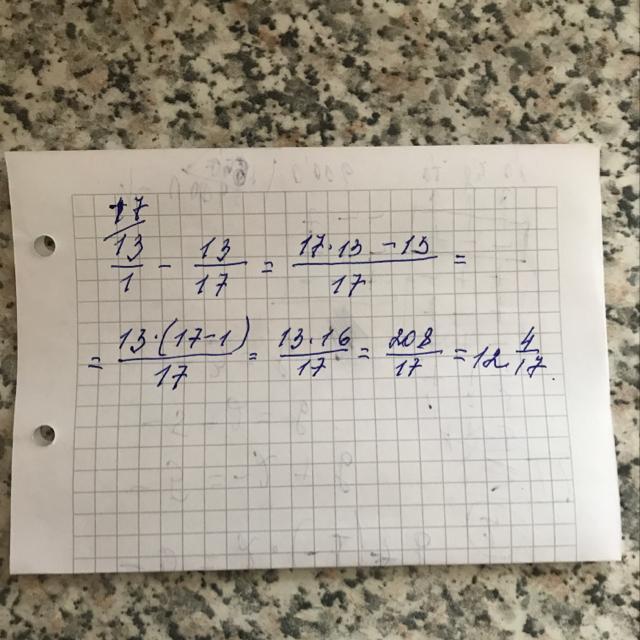 17/
13/1 - 13/17 = (17·13 - 13)/17 =
= 13·(17-1)/17 = 13·16/17 = 208/17 = 12 4/17.